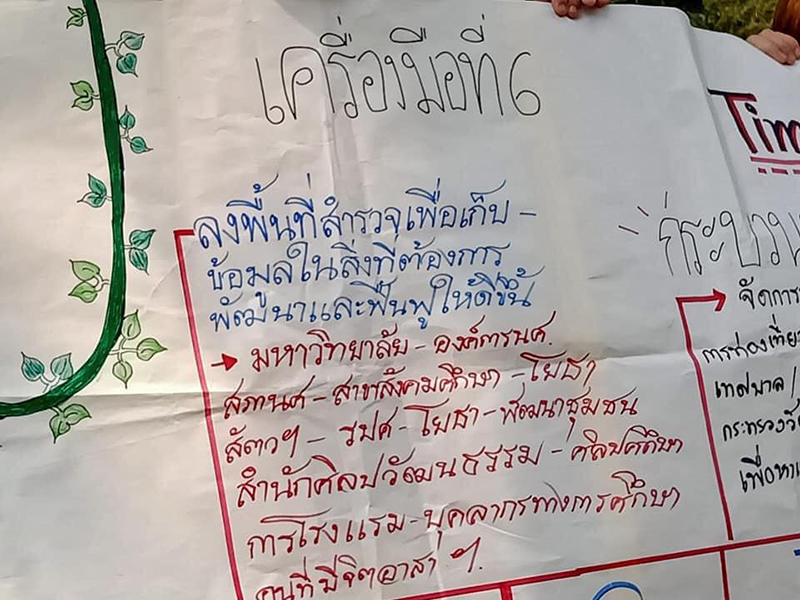 เครื่องมือที่ 6
ลงพื้นที่สำรวจเพื่อเก็บ -
ข้อมูลในสิ่งที่ต้องการ
พัฒนาและฟื้นฟูให้ดีขึ้น
→ มหาวิทยาลัย - องค์การนศ.
สภานศ - สาขาสังคมศึกษา - โยธา
สัตวฯ - รปศ - โยธา - พัฒนาชุมชน
สำนักศิลปวัฒนธรรม - ศิลปศึกษา
การโรงแรม - บุคลากรทางการศึกษา
คนที่มีจิตอาสา ฯ.
Tim
กระบวน
จัดการ
การท่องเที่ยว
เทศบาล /
กระทรวงวั
เพื่อหา